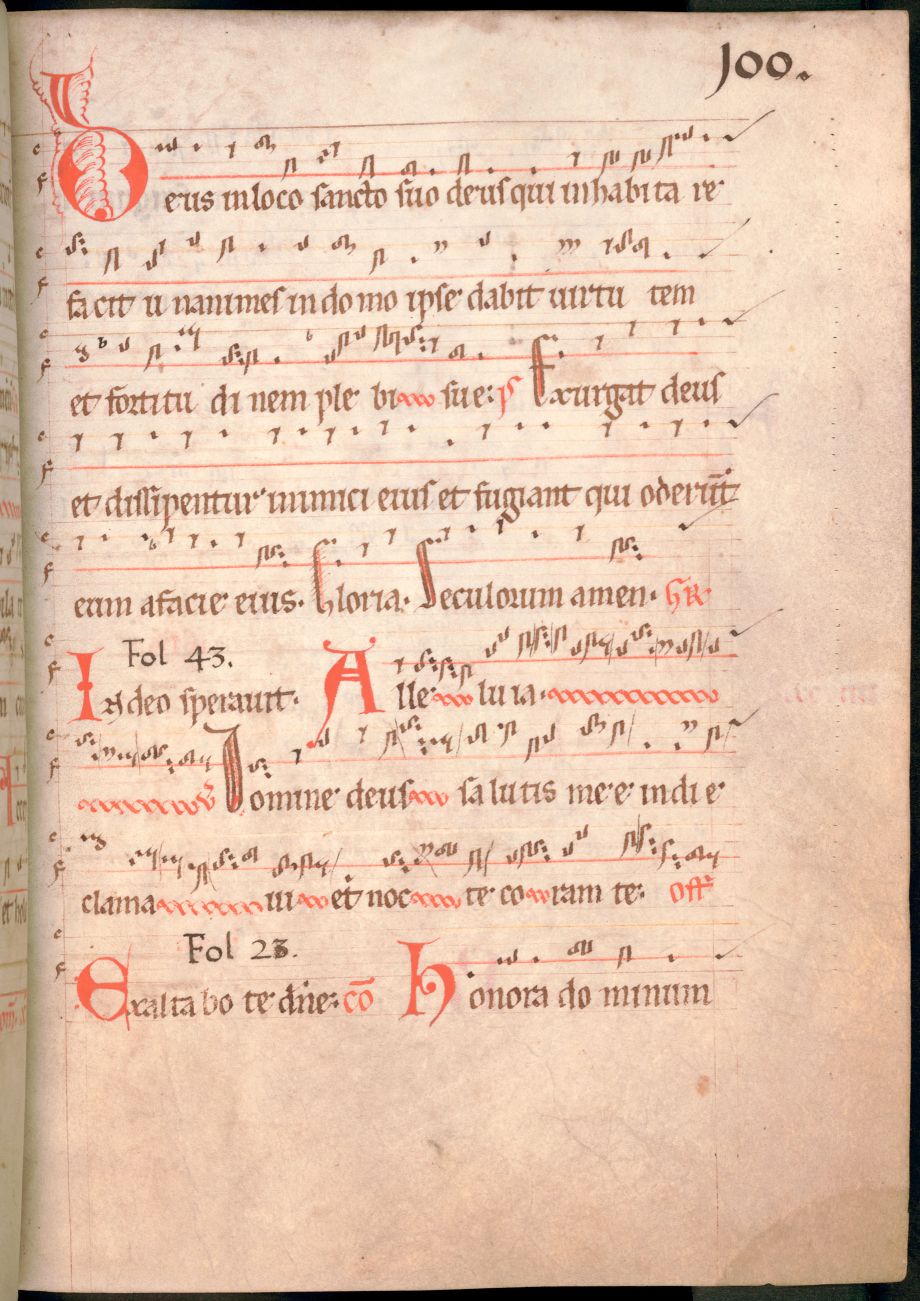 100.
Deus in loco sancto suo deus qui inhabita re
facit u nanimes in do mo ipse dabit uirtu tem
et fortitu di nem ple bi sue: ps Exurgat deus
et dissipentur inimici eius et fugiant qui oderūt
eum a facie eius. Gloria. Seculorum amen. GR
Fol 43.
In deo sperauit. Alle lu ia.
V Domine deus sa lutis me e in di e
clama ui et noc te co ram te: Off
Fol 23.
Exalta bo te dn̄e: cō Honora do minum